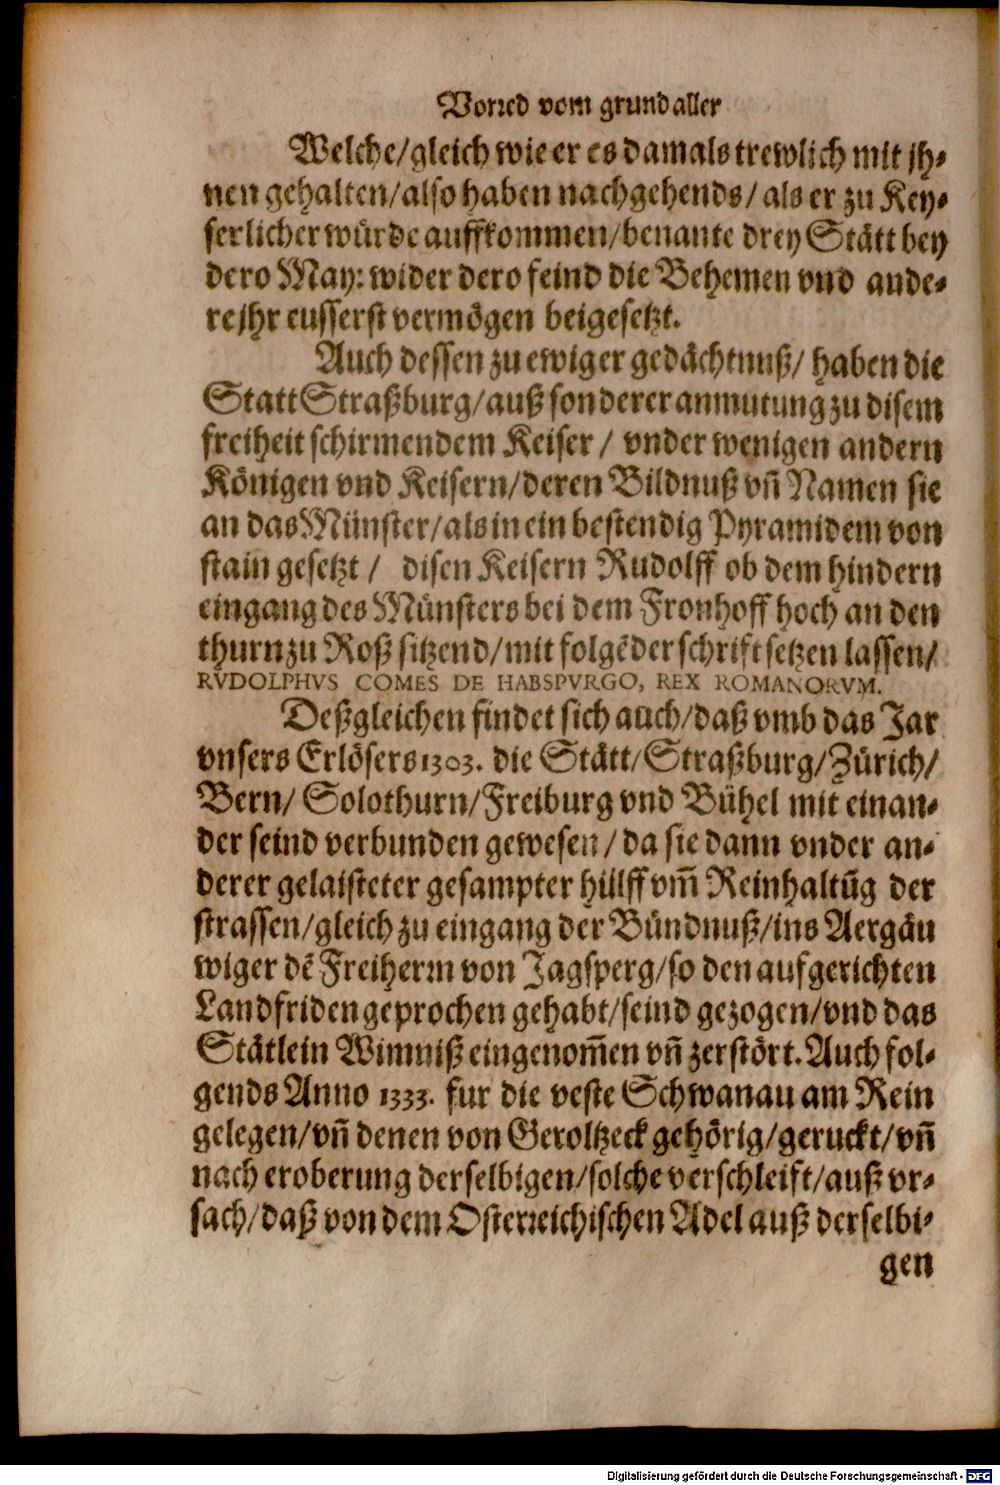 Vorred vom grund aller
Welche/gleich wie er es damals trewlich mit jh-
nen gehalten/also haben nachgehends/als er zu Key-
serlicher würde auffkommen/benante drey Stätt bey
dero May: wider dero feind die Behemen vnd ande-
re jhr eusserst vermögen beigesetzt.
Auch dessen zu ewiger gedächtnuß/ haben die
Statt Straßburg/auß sonderer anmutung zu disem
freiheit schirmendem Keiser / vnder wenigen andern
Königen vnd Keisern/deren Bildnuß vñ Namen sie
an das Münster/als in ein bestendig Pyramidem von
stain gesetzt / disen Keisern Rudolff ob dem hindern
eingang des Münsters bei dem Fronhoff hoch an den
thurn zu Roß sitzend/mit folgẽder schrift setzen lassen/
RVDOLPHVS COMES DE HABSPVRGO, REX ROMANORVM.
Deßgleichen findet sich auch/daß vmb das Jar
vnsers Erlösers 1303. die Stätt/Straßburg/Zürich/
Bern/ Solothurn/Freiburg vnd Bühel mit einan-
der seind verbunden gewesen / da sie dann vnder an-
derer gelaisteter gesampter hülff vm̃ Reinhaltũg der
strassen/gleich zu eingang der Bündnuß/ins Aergäu
wiger dẽ Freiherrn von Jagsperg/so den aufgerichten
Landfriden geprochen gehabt/seind gezogen/vnd das
Stätlein Wimniß eingenom̃en vñ zerstört. Auch fol-
gends Anno 1333. fur die veste Schwanau am Rein
gelegen/vñ denen von Geroltzeck gehörig/geruckt/vñ
nach eroberung derselbigen/solche verschleift/auß vr-
sach/daß von dem Osterreichischen Adel auß derselbi-
gen
Digitalisierung gefördert durch die Deutsche Forschungsgemeinschaft - DFG